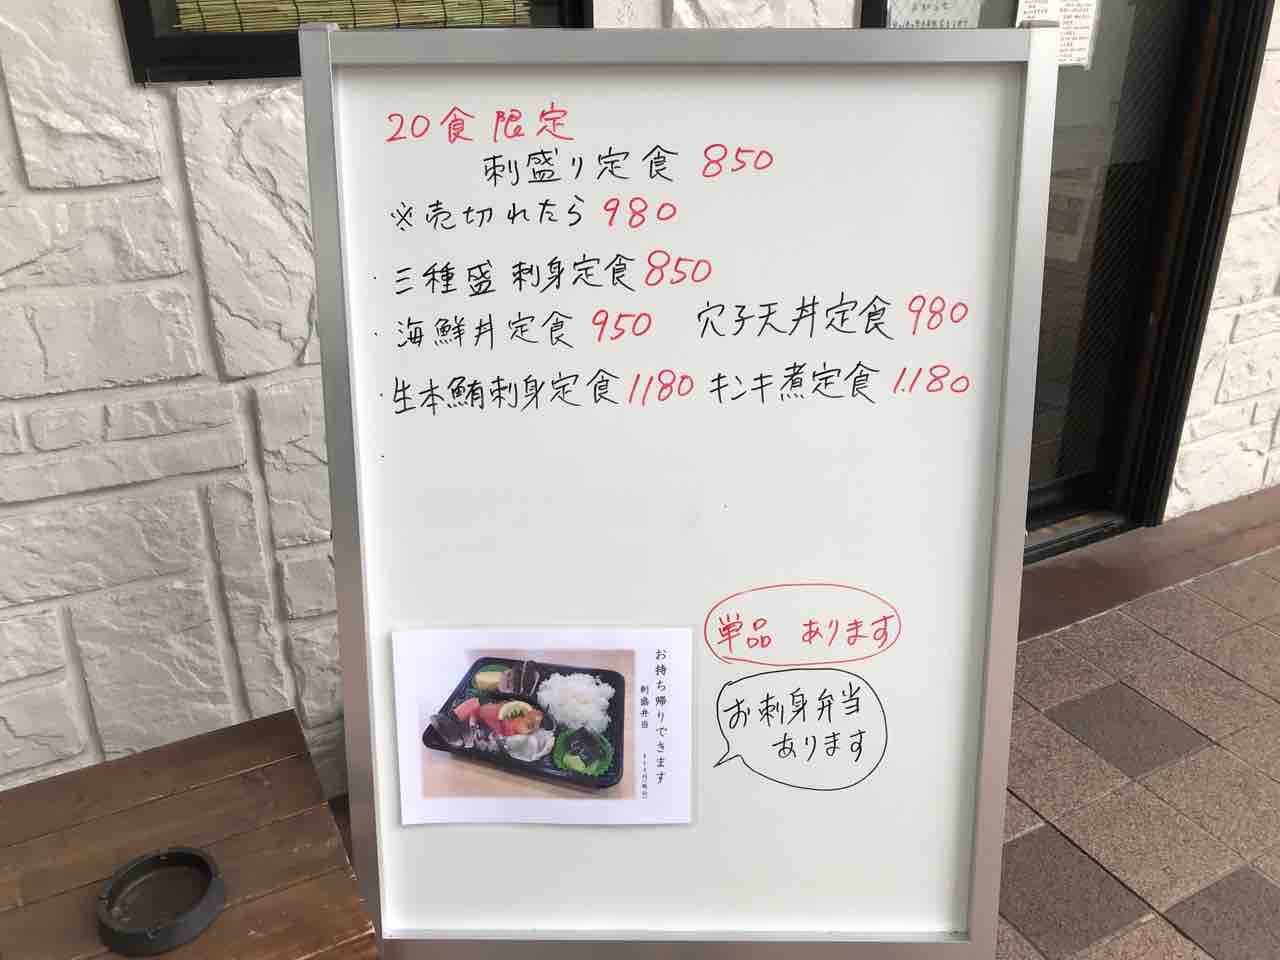 20食 限定
刺盛り定食 850
※売切れたら 980
・三種盛 刺身定食 850
・海鮮丼定食 950
穴子天丼定食 980
・生本鮪刺身定食 1180
キンキ煮定食 1.180
単品 あります
お刺身弁当
あります
お持ち帰りできます
刺盛弁当